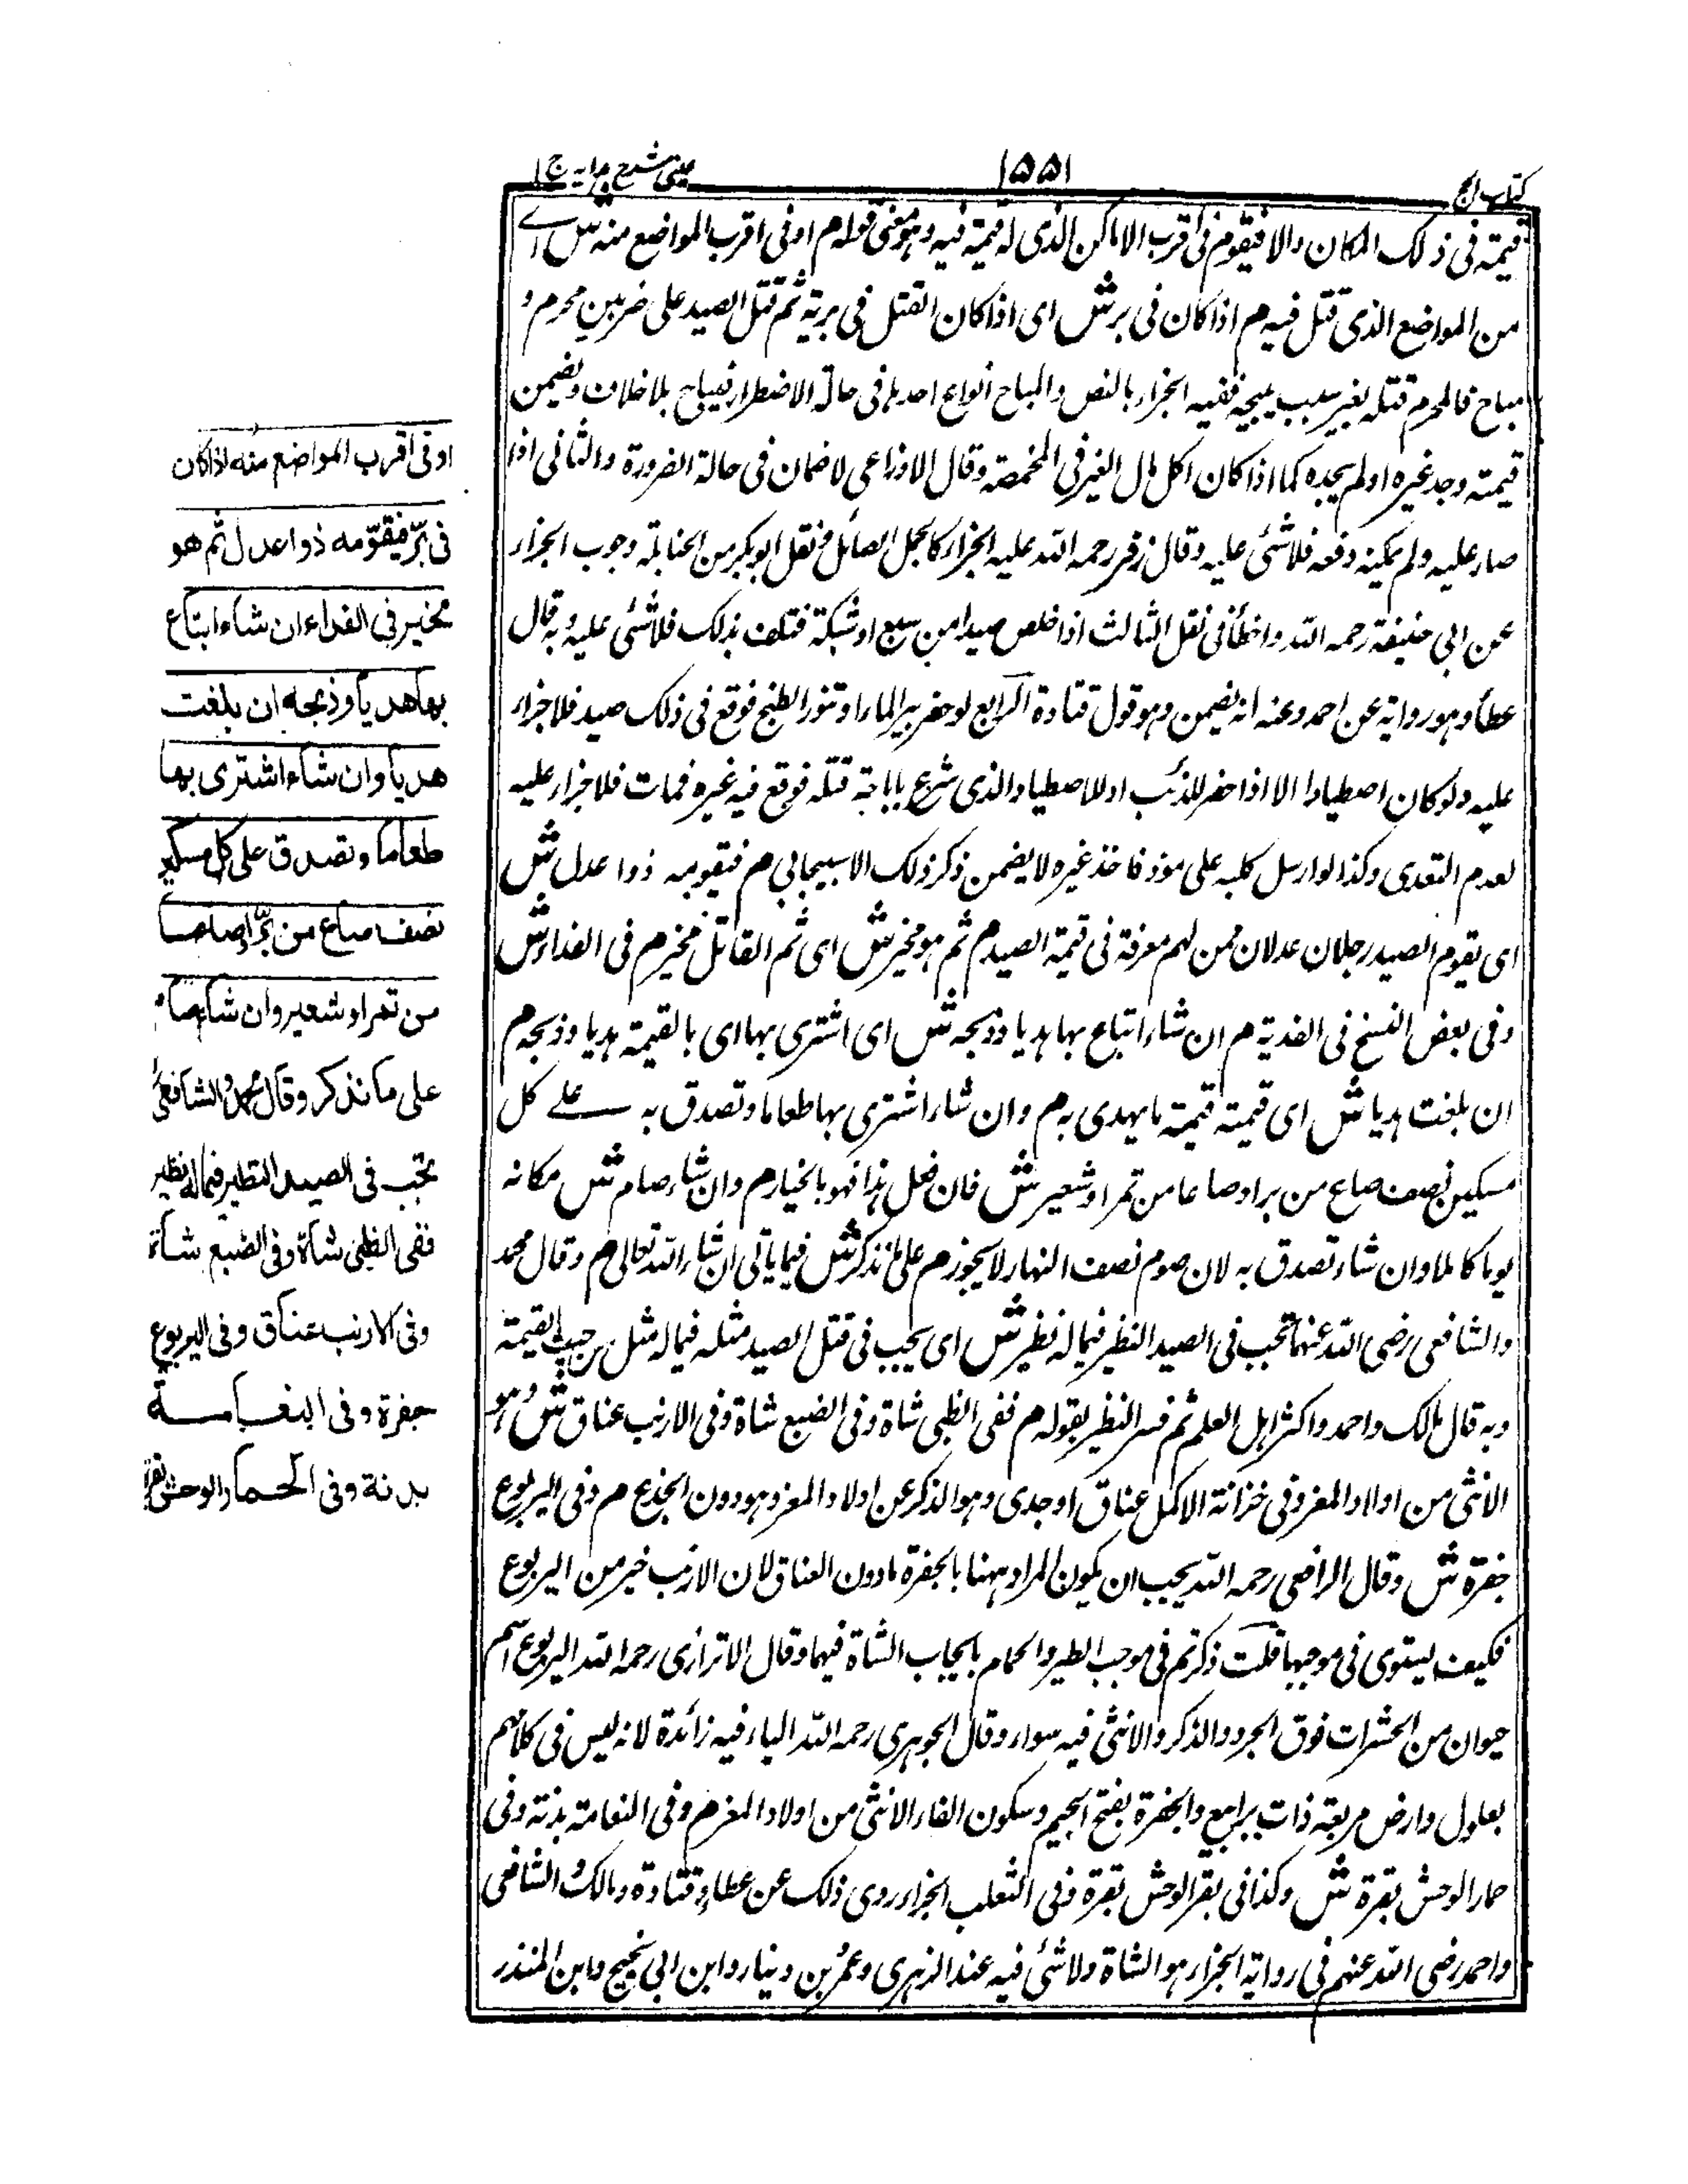 كتاب الحج
١٥٥١
عينى شرح هدايه ج ١
قيمته فى ذلك المكان والا فيقوم فى اقرب الاماكن الذى له قيمة فيه وهو معنى قوله م او فى اقرب المواضع منه ش اے
من المواضع الذى قتل فيه م اذا كان فى بر ش اى اذا كان القتل فى برية ثم قتل الصيد على ضربين محرم و
مباح فالمحرم قتله بغير سبب يبيحه ففيه الجزاء بالنص والمباح انواع احدها فى حالة الاضطرار فيباح بلا خلاف ويضمن
قيمته وجد غيره او لم يجده كما اذا كان اكل مال الغير فى المخمصة وقال الاوزاعى لا ضمان فى حالة الضرورة والثانى اذا
صار عليه ولم يمكنه دفعه فلا شئ عليه وقال زفر رحمه الله عليه الجزاء كالجمل الصائل م نقل ابو بكر من الحنابلة وجوب الجزاء
عن ابى حنيفة رحمه الله واخطأ فى نقل الثالث اذا خلص صيدا من سبع او شبكة فتلف بذلك فلا شئ عليه وبه قال
عطاء وهو رواية عن احمد وعنه انه يضمن وهو قول قتادة الرابع لو حفر بير الماء او تنور الطبخ فوقع فى ذلك صيد فلا جزاء
عليه ولو كان اصطيادا الا اذا حفر للذئب او للاصطياد الذى شرع باباحة قتله فوقع فيه غيره فمات فلا جزاء عليه
لعدم التعدى وكذا لو ارسل كلبه على موذ فاخذ غيره لا يضمن ذكر ذلك الاسبيجابى م فيقومه ذوا عدل ش
اى يقوم الصيد رجلان عدلان ممن لهم معرفة فى قيمة الصيد م ثم هو مخير ش اى ثم القاتل مخير م فى الفداء ش
وفى بعض النسخ فى الفدية م ان شاء ابتاع بها هديا وذبحه ش اى اشترى بها اى بالقيمة هديا وذبحه م
ان بلغت هديا ش اى قيمته قيمة ما يهدى به م وان شاء اشترى بها طعاما وتصدق به علے كل
مسكين نصف صاع من بر او صاعا من تمر او شعير ش فان فعل هذا فهو بالخيار م وان شاء صام ش مكانه
يوما كاملا وان شاء تصدق به لان صوم نصف النهار لا يجوز م على ما نذكر ش فيما ياتى ان شاء الله تعالى م وقال محمد
والشافعى رضى الله عنهما تجب فى الصيد النظر فيما له نظير ش اى يجب فى قتل الصيد مثله فيما له مثل من حيث القيمة
وبه قال مالك واحمد واكثر اهل العلم ثم فسر النظير بقوله م ففى الظبى شاة وفى الضبع شاة وفى الارنب عناق ش هو
الانثى من اولاد المعز وفى خزانة الاكمل عناق او جدى وهو الذكر عن اولاد المعز وهو دون الجذع م وفى اليربوع
جفرة ش وقال الرافعى رحمه الله يجب ان يكون المراد ههنا بالجفرة مادون العناق لان الارنب خير من اليربوع
فكيف يستوى فى موجبها قلت ذكرتم فى موجب الطير والحمام بايجاب الشاة فيهما وقال الاترازى رحمه الله اليربوع اسم
حيوان من الحشرات فوق الجرد والذكر والانثى فيه سواء وقال الجوهرى رحمه الله الياء فيه زائدة لانه ليس فى كلامهم
بعلول وارض مربعة ذات يرابيع والجفرة بفتح الجيم وسكون الفاء الانثى من اولاد المعز م وفى النعامة بدنة وفى
حمار الوحش بقرة ش وكذا فى بقر الوحش بقرة وفى الثعلب الجزاء روى ذلك عن عطاء وقتادة ومالك والشافعى
واحمد رضى الله عنهم فى رواية الجزاء هو الشاة ولا شئ فيه عند الزهرى وعمرو بن دينار وابن ابى نجيح وابن المنذر
او فى اقرب المواضع منه اذا كان
فى برّ فيقوّمه ذوا عدل ثم هو
مخير فى الفداء ان شاء ابتاع
بها هديا وذبحه ان بلغت
هديا وان شاء اشترى بها
طعاما وتصدق على كل مسكين
نصف صاع من برّ او صاعا
من تمر او شعير وان شاء صام
على ما نذكر وقال محمد والشافعى
تجب فى الصيد النظير فيما له نظير
ففى الظبى شاة وفى الضبع شاة
وفى الارنب عناق وفى اليربوع
جفرة وفى النعامة
بدنة وفى الحمار الوحش بقرة